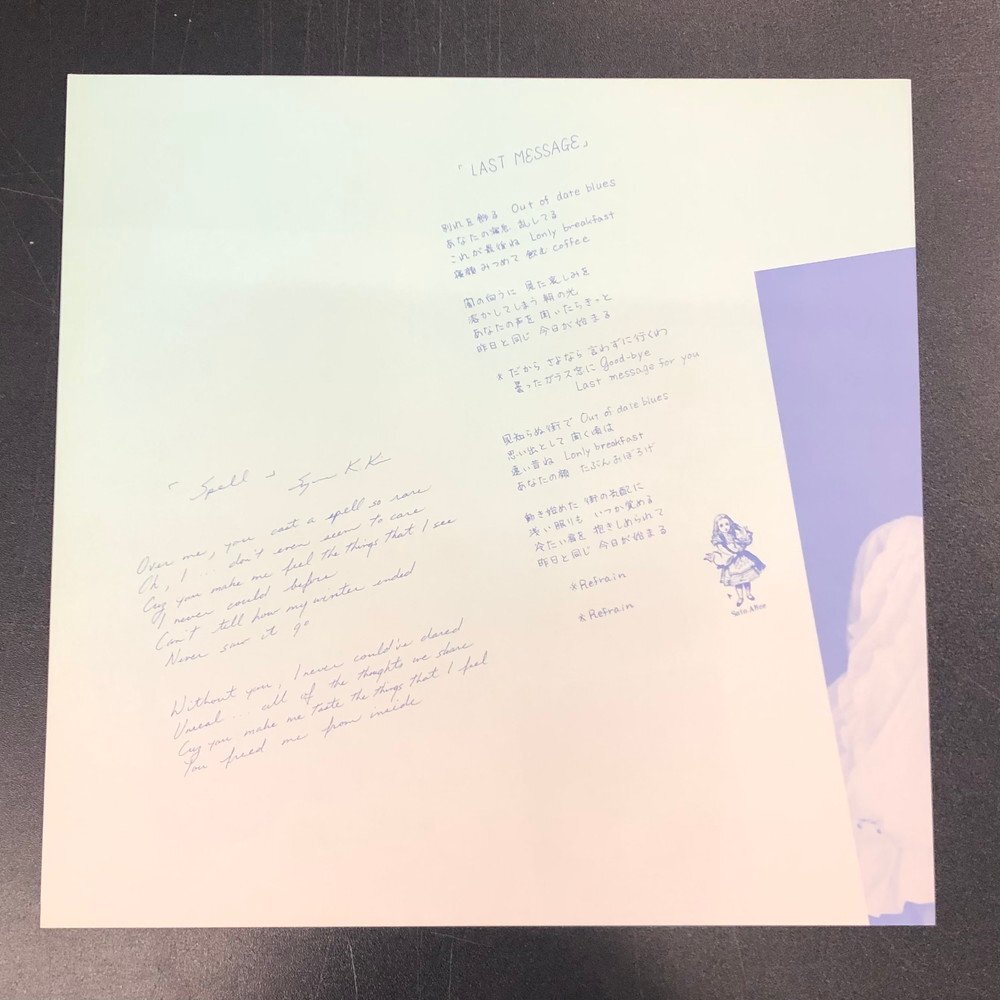 「LAST MESSAGE」
別れを飾る Out of date blues
あなたの寝息 乱してる
これが最後ね Lonly breakfast
寝顔みつめて 飲む coffee
闇の向うに 見た哀しみを
溶かしてしまう 朝の光
あなたの声を 聞いたらきっと
昨日と同じ 今日が始まる
*だから さよなら 言わずに行くわ
曇ったガラス窓に Good-bye
Last message for you
見知らぬ街で Out of date blues
思い出として 聞く頃は
遠い昔ね Lonly breakfast
あなたの顔 たぶんおぼろげ
動き始めた 街の気配に
浅い眠りも いつか覚める
冷たい肩を 抱きしめられて
昨日と同じ 今日が始まる
*Refrain
*Refrain
Sato. Alice
「Spell」 K.K
Over me, you cast a spell so rare
Oh, I... don't even seem to care
Cuz you make me feel the things that I see
I never could before
Can't tell how my winter ended
Never saw it go
Without you, I never could've dared
Unreal... all of the thoughts we share
Cuz you make me taste the things that I feel
You freed me from inside